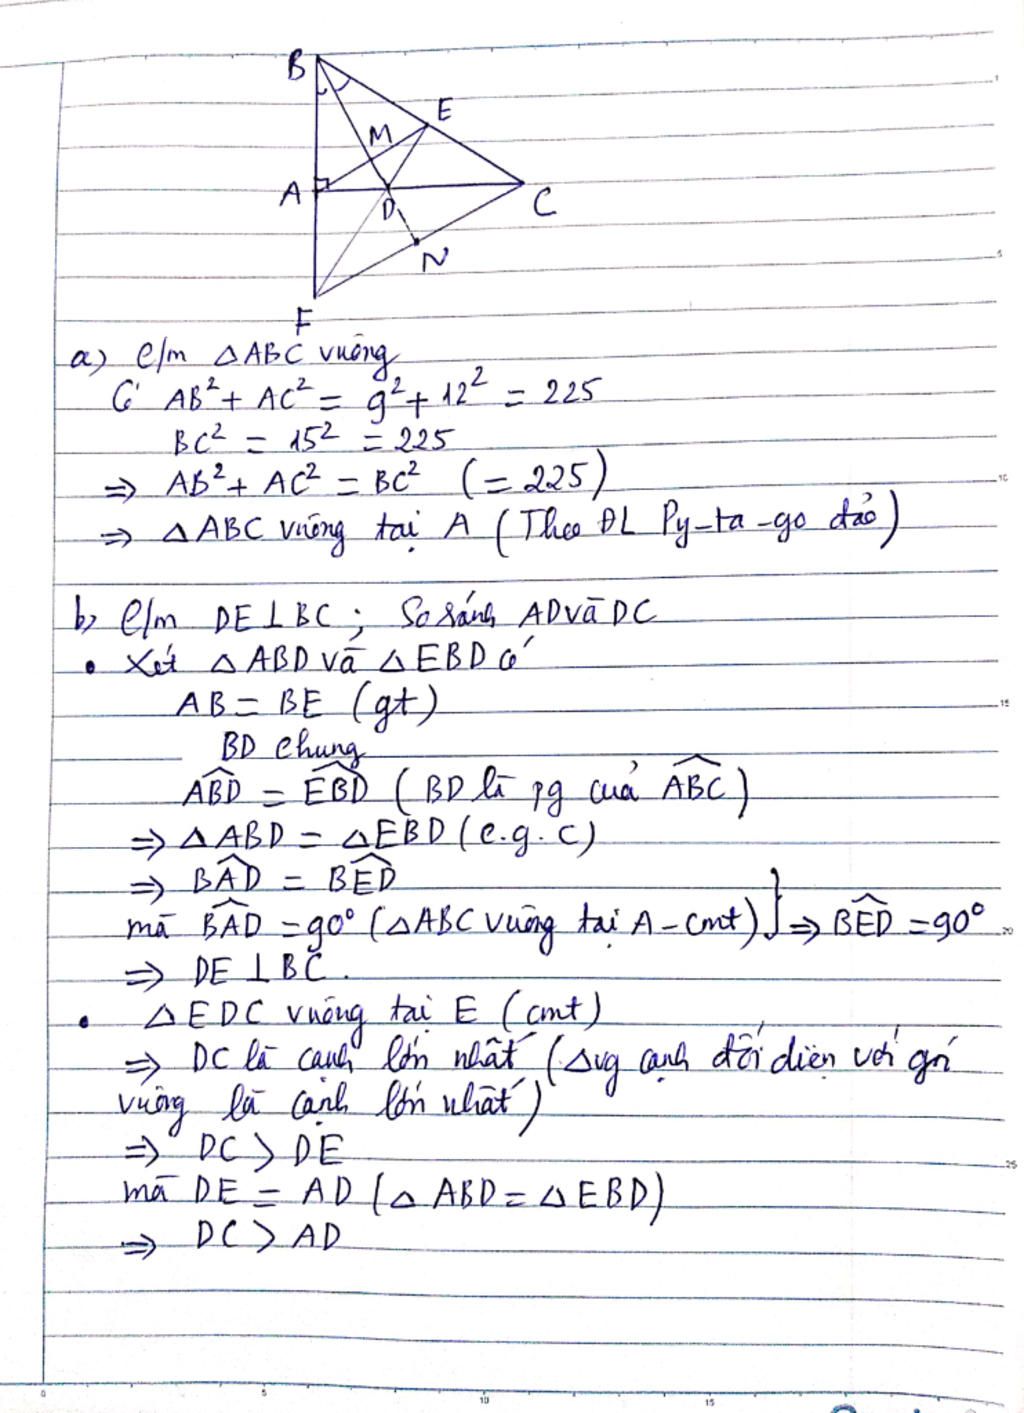 B
E
M
A
D
C
N
F
a) C/m △ABC vuông
Có AB² + AC² = 9² + 12² = 225
BC² = 15² = 225
⇒ AB² + AC² = BC² (= 225)
⇒ △ABC vuông tại A (Theo ĐL Py-ta-go đảo)
b, C/m DE⊥BC ; So sánh AD và DC
• Xét △ABD và △EBD có
AB = BE (gt)
BD chung
\widehat{ABD} = \widehat{EBD} (BD là pg của \widehat{ABC})
⇒ △ABD = △EBD (c.g.c)
⇒ \widehat{BAD} = \widehat{BED}
mà \widehat{BAD} = 90° (△ABC vuông tại A - cmt) } ⇒ \widehat{BED} = 90°
⇒ DE⊥BC.
• △EDC vuông tại E (cmt)
⇒ DC là cạnh lớn nhất (△vg cạnh đối diện với góc
vuông là cạnh lớn nhất)
⇒ DC > DE
mà DE = AD (△ABD = △EBD)
⇒ DC > AD